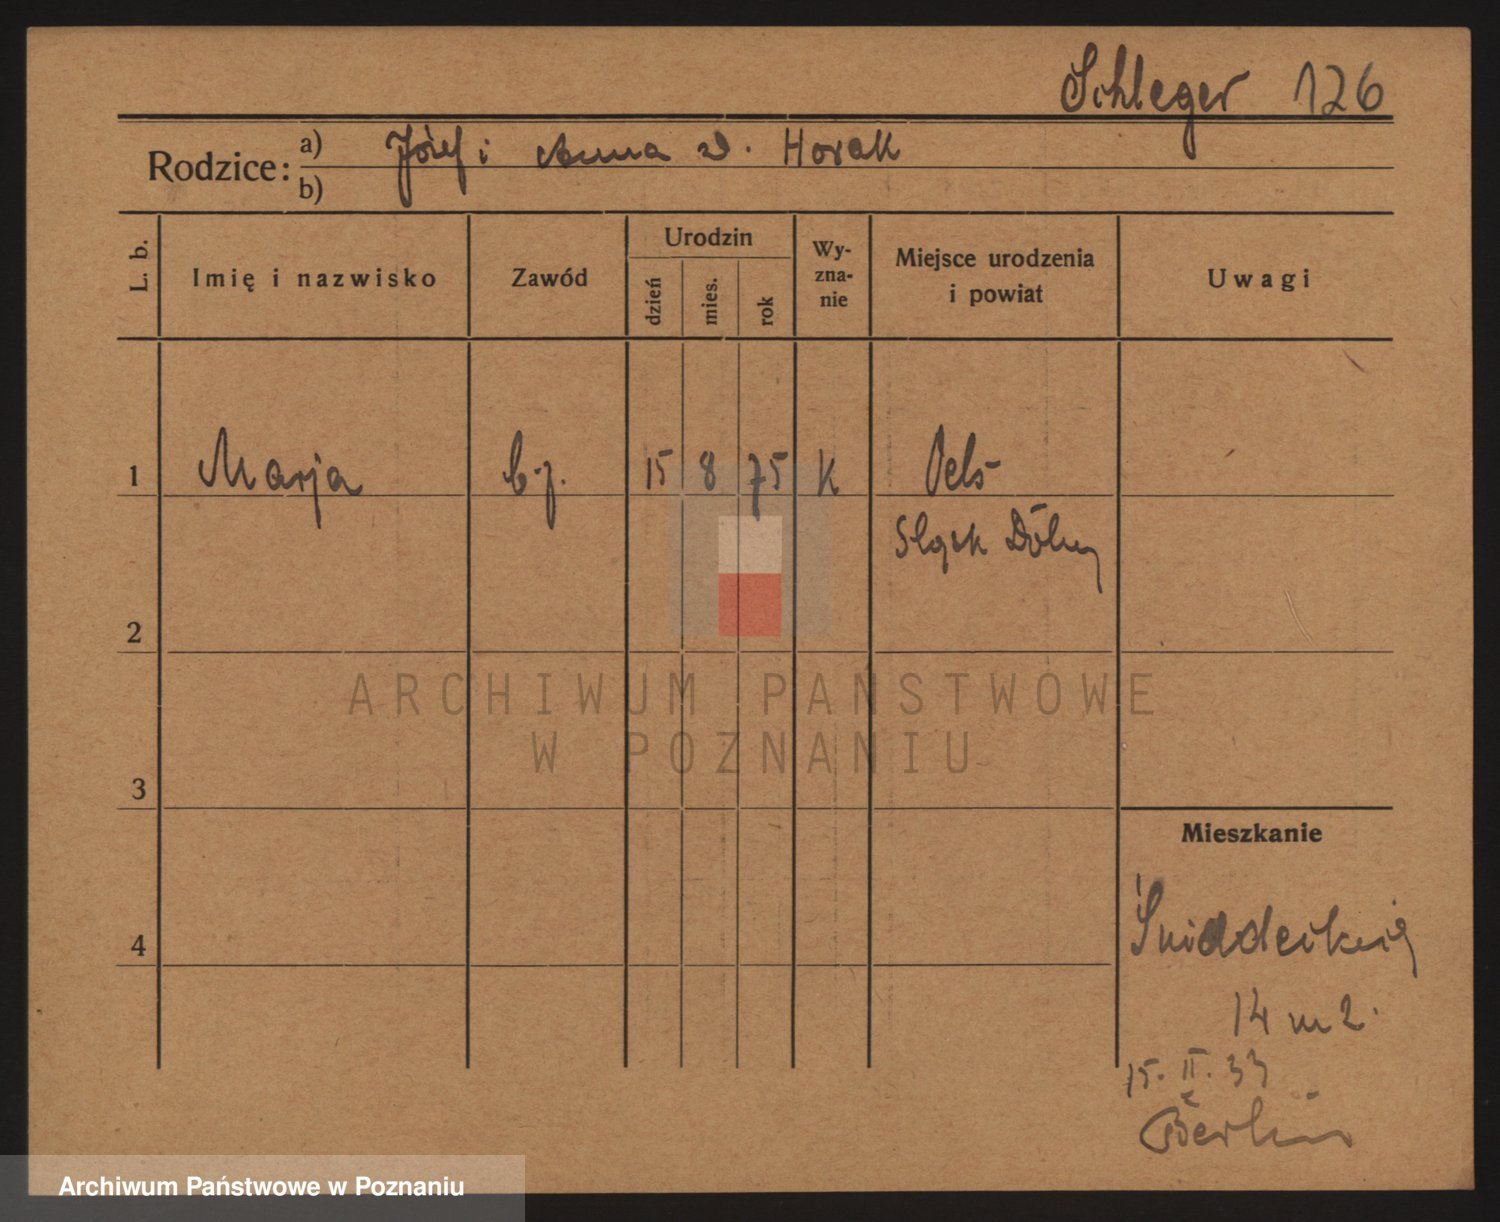 Schleger 126
Rodzice: a) Józef i Anna d. Horak
b)
L. b.
Imię i nazwisko
Zawód
Urodzin
dzień
mies.
rok
Wy-
zna-
nie
Miejsce urodzenia
i powiat
Uwagi
1 Marja b.z. 15 8 75 k Oels
Śląsk Dolny
2
3
4
Mieszkanie
Śniadeckich
14 m 2.
15. II. 33
Berlin
ARCHIWUM PAŃSTWOWE
W POZNANIU
Archiwum Państwowe w Poznaniu